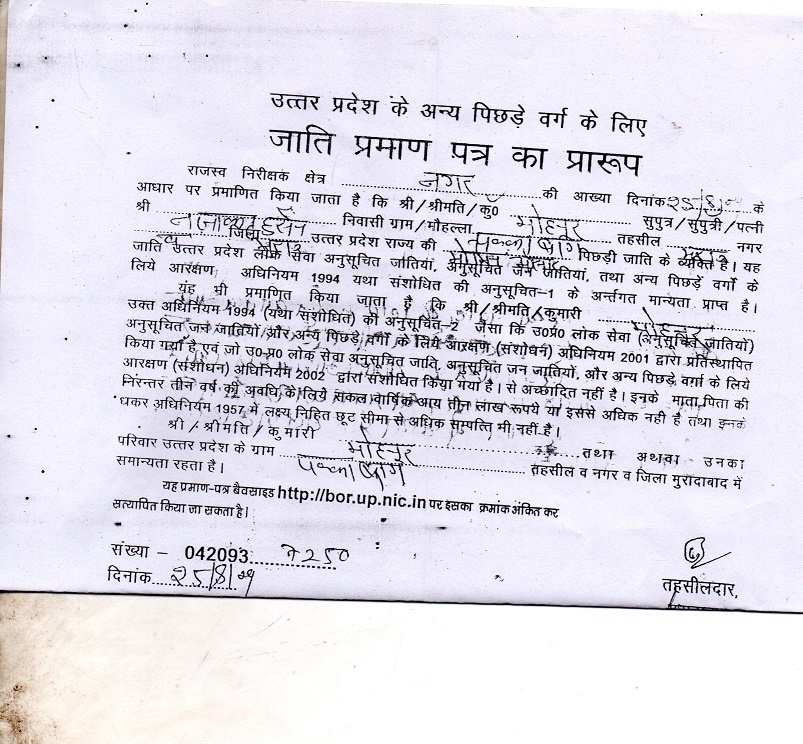 उत्तर प्रदेश के अन्य पिछड़े वर्ग के लिए
जाति प्रमाण पत्र का प्रारूप
राजस्व निरीक्षक क्षेत्र नगर की आख्या दिनांक के
आधार पर प्रमाणित किया जाता है कि श्री/श्रीमति/कु० सुपुत्र/सुपुत्री/पत्नी
श्री निवासी ग्राम/मौहल्ला तहसील नगर
व जिला उत्तर प्रदेश राज्य की पिछड़ी जाति के व्यक्ति है। यह
जाति उत्तर प्रदेश लोक सेवा अनुसूचित जातियां, अनुसूचित जन जातियां, तथा अन्य पिछड़े वर्गों के
लिये आरक्षण अधिनियम 1994 यथा संशोधित की अनुसूचित-1 के अर्न्तगत मान्यता प्राप्त है।
यह भी प्रमाणित किया जाता है कि श्री/श्रीमति/कुमारी
उक्त अधिनियम 1994 (यथा संशोधित) की अनुसूचित-2 जैसा कि उ०प्र० लोक सेवा (अनुसूचित जातियों)
अनुसूचित जन जातियों और अन्य पिछड़े वर्गों के लिये आरक्षण (संशोधन) अधिनियम 2001 द्वारा प्रतिस्थापित
किया गया है एवं जो उ०प्र० लोक सेवा अनुसूचित जाति, अनुसूचित जन जातियों, और अन्य पिछड़े वर्गो के लिये
आरक्षण (संशोधन) अधिनियम 2002 द्वारा संशोधित किया गया है। से अच्छादित नहीं है। इनके माता पिता की
निरन्तर तीन वर्ष की अवधि के लिये सकल वार्षिक आय तीन लाख रूपये या इससे अधिक नही है तथा इनके
धकर अधिनियम 1957 में लक्ष्य निहित छूट सीमा से अधिक सम्पत्ति भी नहीं है।
श्री/श्रीमति/कुमारी तथा अथवा उनका
परिवार उत्तर प्रदेश के ग्राम तहसील व नगर व जिला मुरादाबाद में
समान्यता रहता है।
यह प्रमाण-पत्र बैवसाइड http://bor.up.nic.in पर इसका क्रमांक अंकित कर
सत्यापित किया जा सकता है।
संख्या - 042093 7250
दिनांक 25/8/09
तहसीलदार,